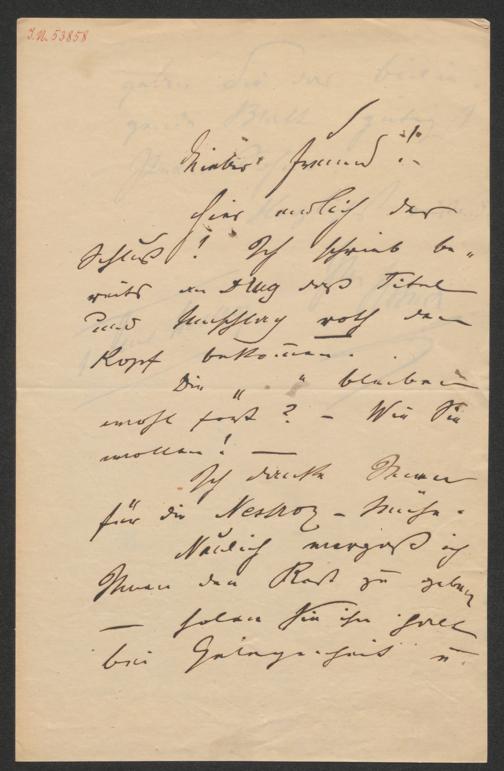 J.N. 53858
Lieber Freund!
hier endlich der
Schluß! Ich schrieb be„
reits an Drug daß Titel
und Umschlag roth den
Kopf bekom̅en.
Die „ “ bleiben
wohl fort? – Wie Sie
wollen! —
Ich danke Ihnen
für die Nestroy – Mühe.
Neulich vergaß ich
Ihnen den Rest zu geben
— holen Sie ihn halt
bei Gelegenheit u.